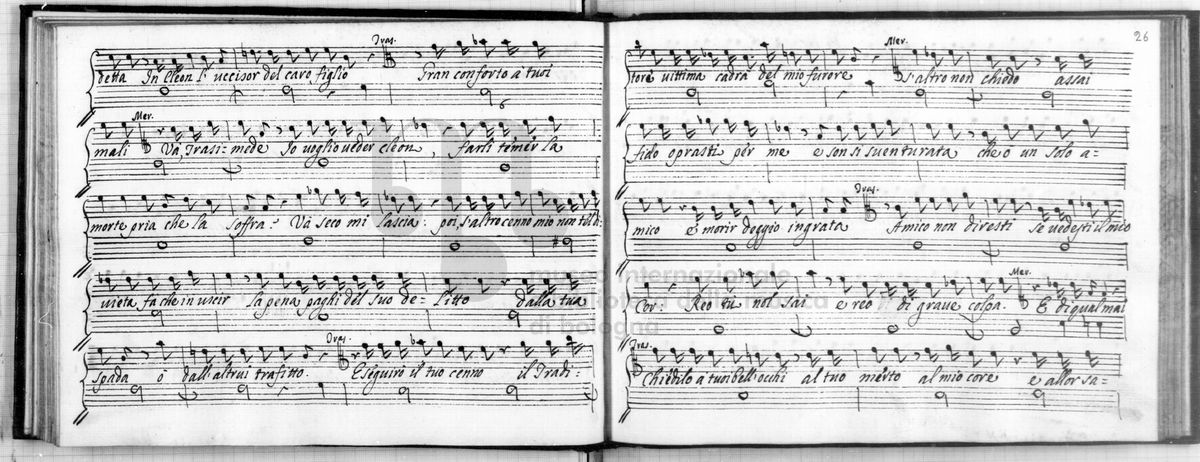 Tras.
detta In Cleon l'uccisor del caro figlio Gran conforto a tuoi
Mer.
mali Và, Trasimede Io voglio veder Cleon, farli temer la
morte pria che la soffra. Và seco mi lascia: poi, s'altro cenno mio non tel di-
vieta fa che in uscir la pena paghi del suo de-litto dalla tua
Tras.
spada ò dall'altrui trafitto. Eseguirò il tuo cenno il Tradi-
26
Mer.
tore vittima cadrà del mio furore S'altro non chiedo assai
fido oprasti per me e son si sventurata che ò un solo a-
Tras.
mico e morir deggio ingrata Amico non diresti se vedesti il mio
Mer.
Cor. Reo tu nol sai e reo di grave colpa. E di qual mai
Tras.
Chiedilo a tuoi bell'occhi al tuo merto al mio core e allor sa-
museo internazionale
di bologna